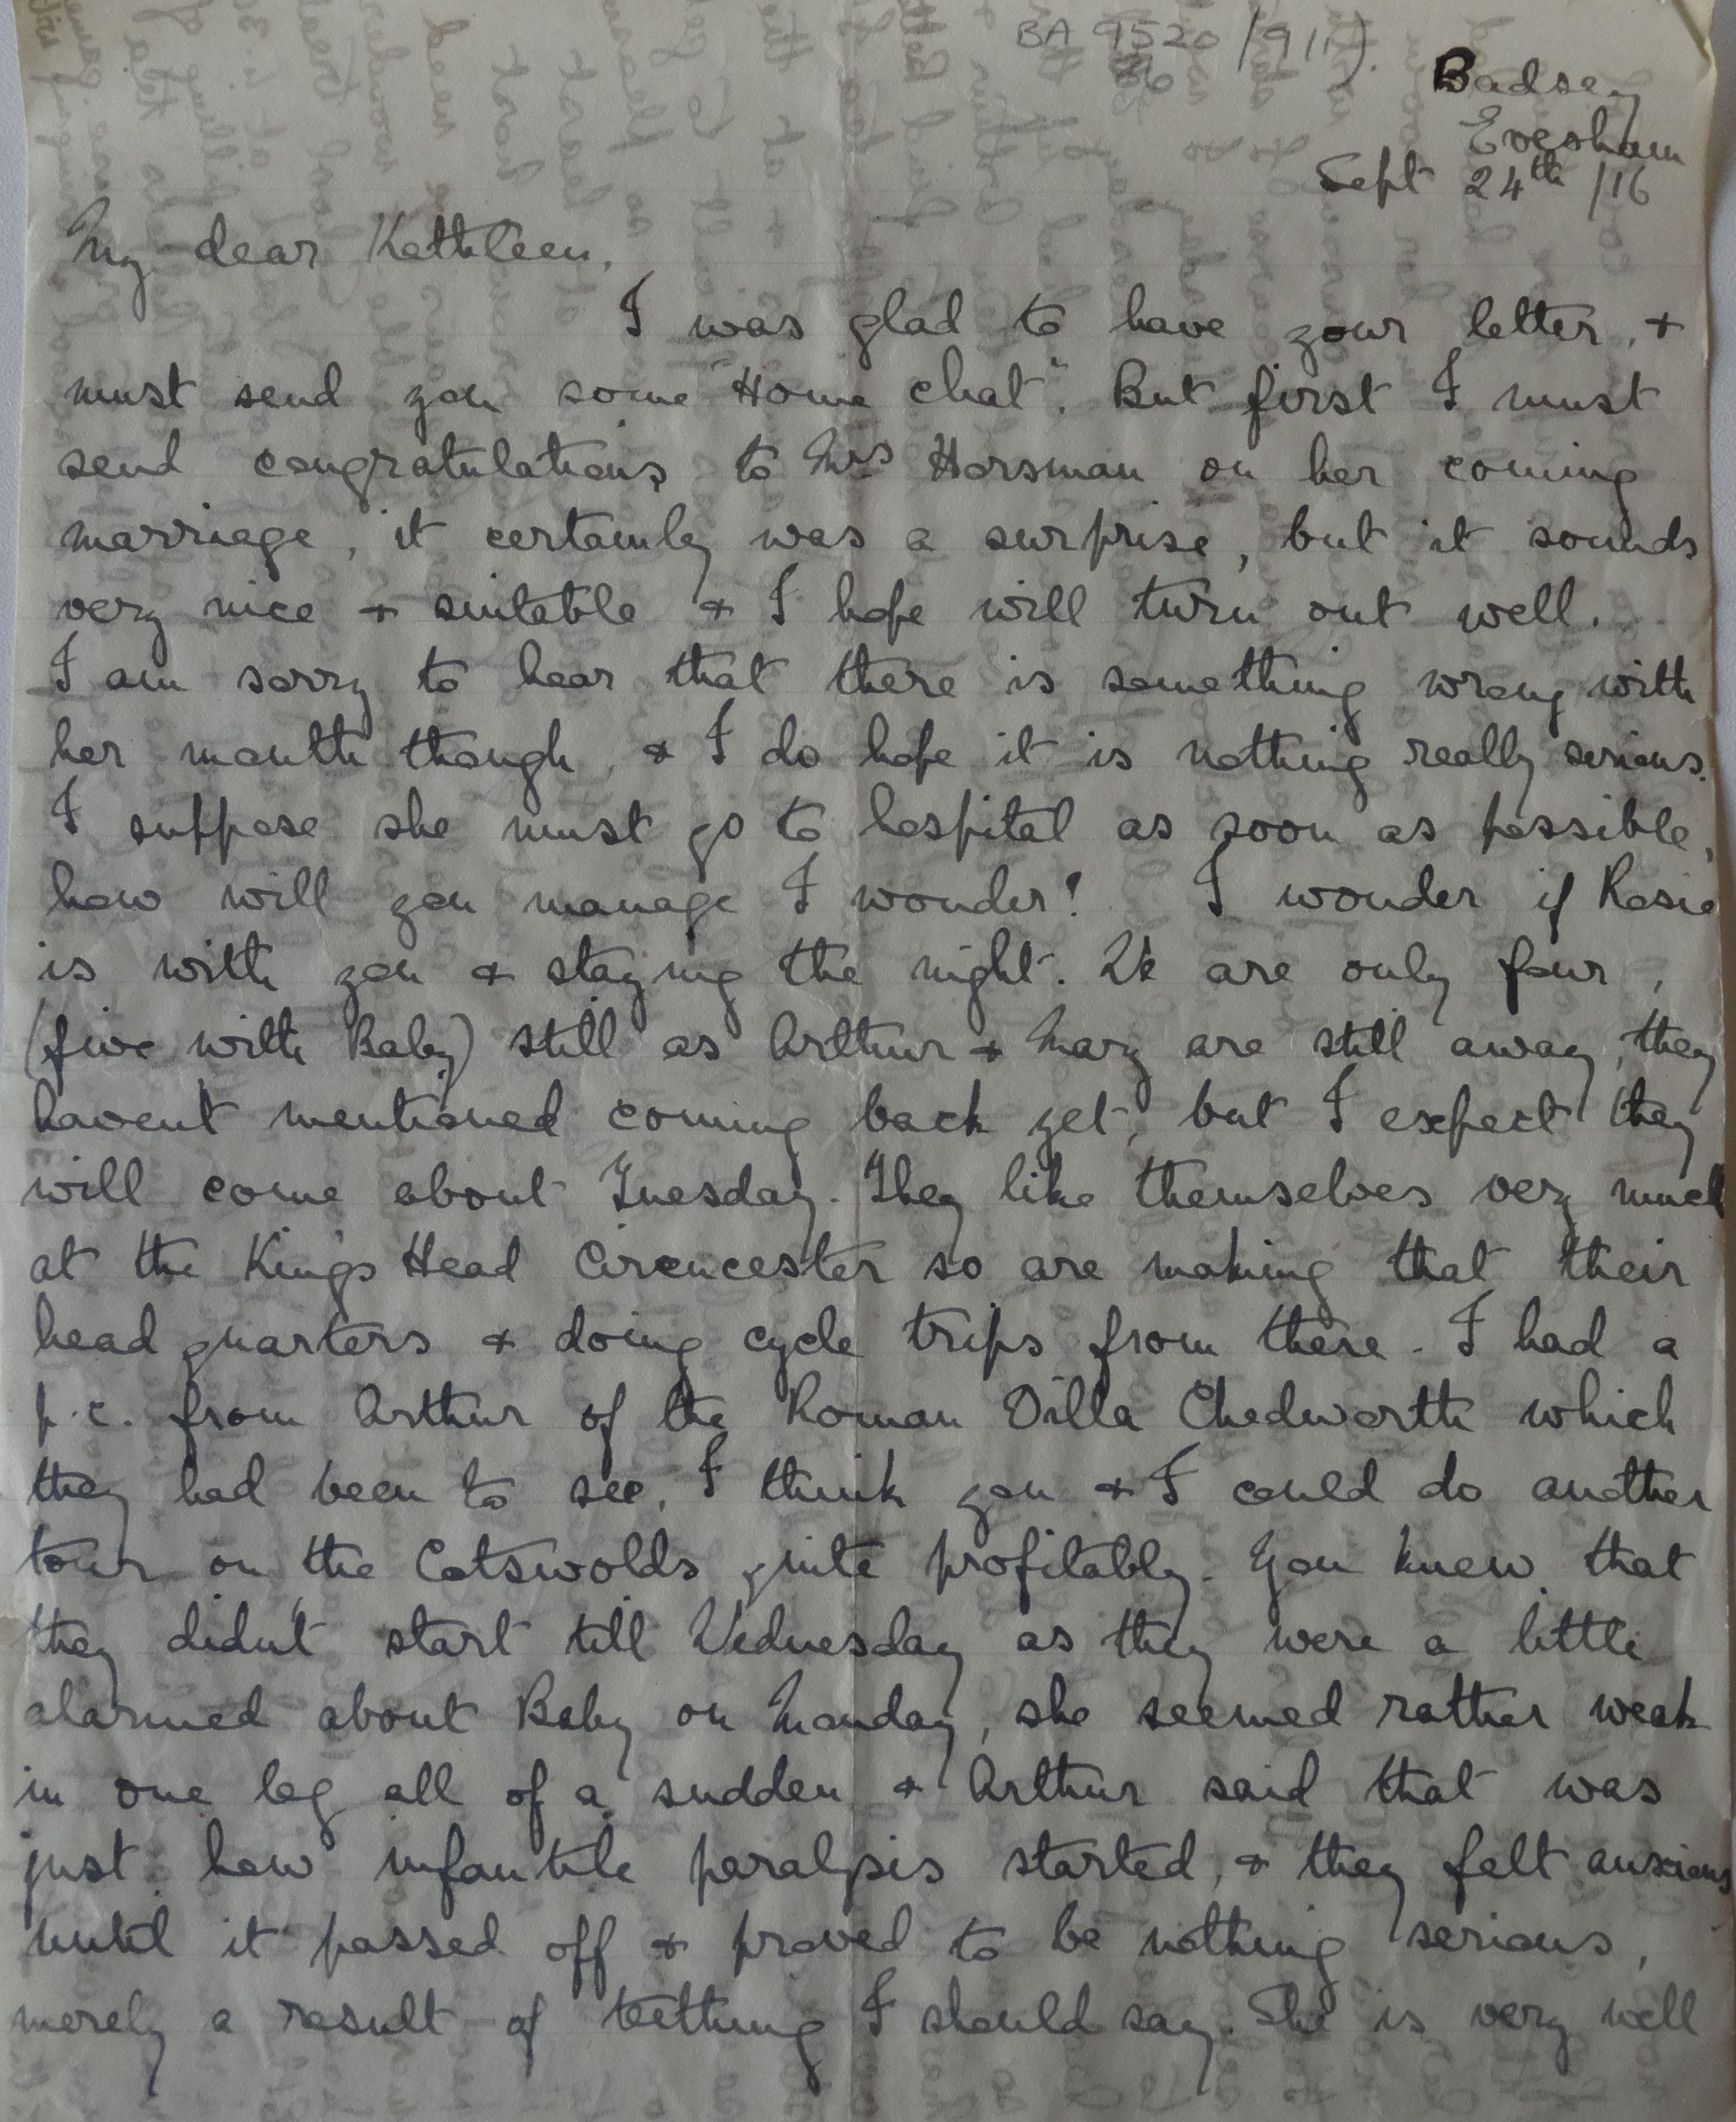 BA 9520 /9(11).
86
Badsey
Evesham
Sept 24th /16
My dear Kathleen,
I was glad to have your letter, +
must send you some "Home chat". But first I must
send congratulations to Mrs Horsman on her coming
marriage, it certainly was a surprise, but it sounds
very nice + suitable + I hope will turn out well.
I am sorry to hear that there is something wrong with
her mouth though, + I do hope it is nothing really serious.
I suppose she must go to hospital as soon as possible,
how will you manage I wonder? I wonder if Rosie
is with you + staying the night. We are only four,
(five with Baby) still as Arthur + Mary are still away, they
havent mentioned coming back yet, but I expect they
will come about Tuesday. They like themselves very much
at the Kings Head Cirencester so are making that their
head quarters + doing cycle trips from there. I had a
p.c. from Arthur of the Roman Villa Chedworth which
they had been to see, I think you + I could do another
tour on the Cotswolds quite profitably. You knew that
they didn't start till Wednesday as they were a little
alarmed about Baby on Monday, she seemed rather weak
in one leg all of a sudden + Arthur said that was
just how infantile paralysis started, + they felt anxious
until it passed off + proved to be nothing serious,
merely a result of teething I should say. She is very well